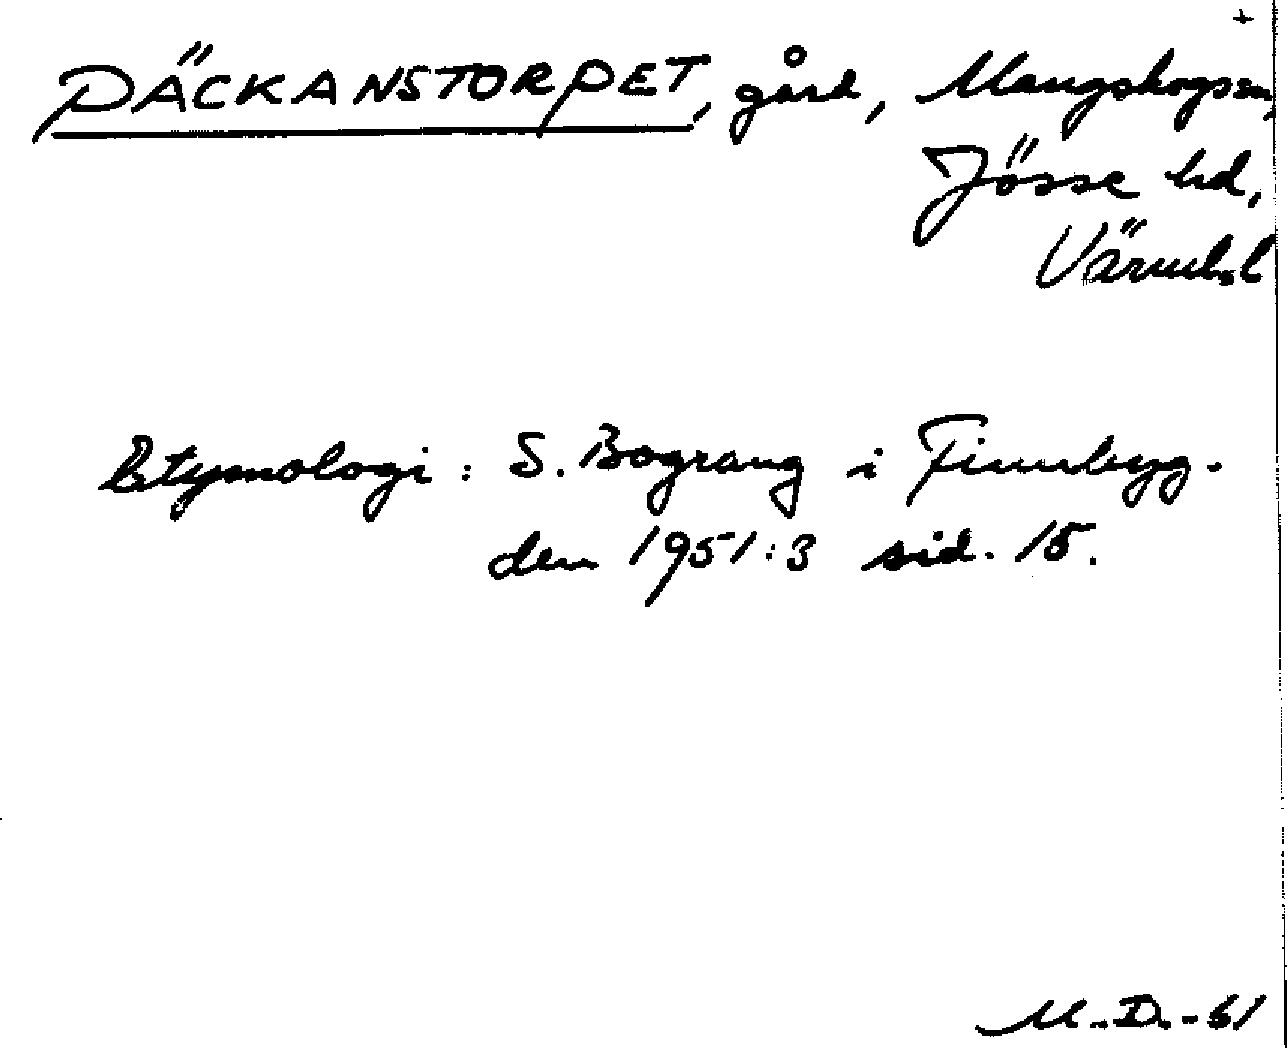 +
PÄCKANSTORPET, gård, Mangskogs sn,
Jösse hd,
Värml. l
Etymologi: S. Bograng i Finnbyg-
den 1951:3 sid. 15.
M.D.-61